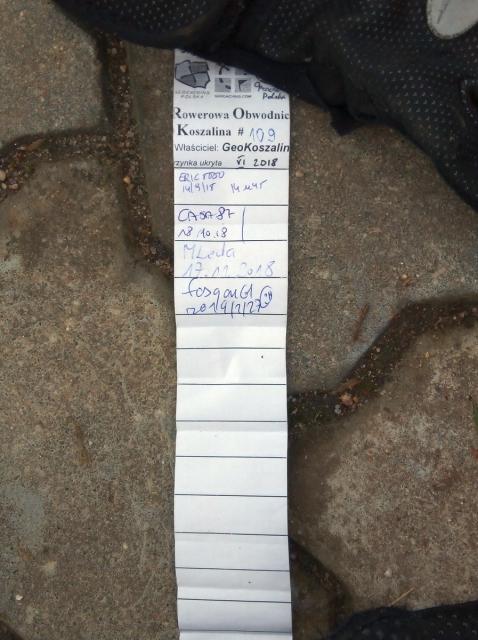 Rowerowa Obwodnic
Koszalina # 109
Właściciel: GeoKoszalin
rzynka ukryta VI 2018
14/9/18
CASA87
18.10.18
MLeda
17.11.2018
fosgen61
2019/2/27